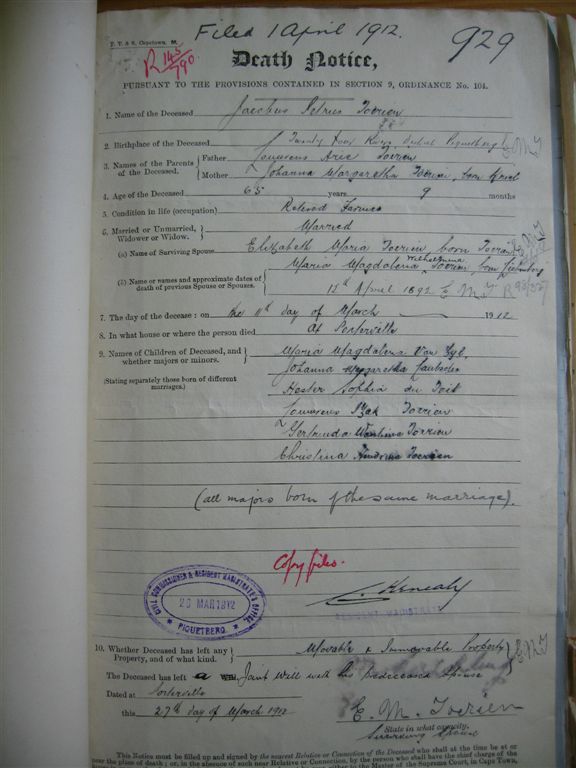 Filed 1 April 1912.
929
P. T. & S. Capetown.
R 145/790
Death Notice,
PURSUANT TO THE PROVISIONS CONTAINED IN SECTION 9, ORDINANCE No. 104.
1. Name of the Deceased Jacobus Petrus Toerien
2. Birthplace of the Deceased Twenty Four Rivers, District Piquetberg
3. Names of the Parents of the Deceased. Father Louwrens Toerien
Mother Johanna Margaretha Toerien, born
4. Age of the Deceased 65 years 9 months
5. Condition in life (occupation) Retired Farmer
6. Married or Unmarried, Widower or Widow. Married
(a) Name of Surviving Spouse Elizabeth Maria Toerien born Toerien
Maria Magdalena Wilhelmina Toerien born
(b) Name or names and approximate dates of death of previous Spouse or Spouses. April 1892 E M T
7. The day of the decease: on the 11th day of March 1912
8. In what house or where the person died At Porterville
9. Names of Children of Deceased, and whether majors or minors.
(Stating separately those born of different marriages.)
Maria Magdalena Van Zyl
Johanna Margaretha
Hester Sophia du Toit
Louwrens Izak Toerien
Gertruda Toerien
Christina Toerien
(all majors born of the same marriage).
Copy filed.
C. Kenealy
RESIDENT MAGISTRATE
CIVIL COMMISSIONER & RESIDENT MAGISTRATE'S OFFICE
28 MAR 1912
PIQUETBERG.
10. Whether Deceased has left any Property, and of what kind. Movable & Immovable Property
E M T
The Deceased has left a Will. Joint Will with his predeceased spouse
Dated at Porterville
this 27th day of March 1912
E. M. Toerien
State in what capacity.
Surviving Spouse
This Notice must be filled up and signed by the nearest Relative or Connection of the Deceased who shall at the time be at or
near the place of death; or, in the absence of such near Relative or Connection, by the person who shall have the chief charge of the